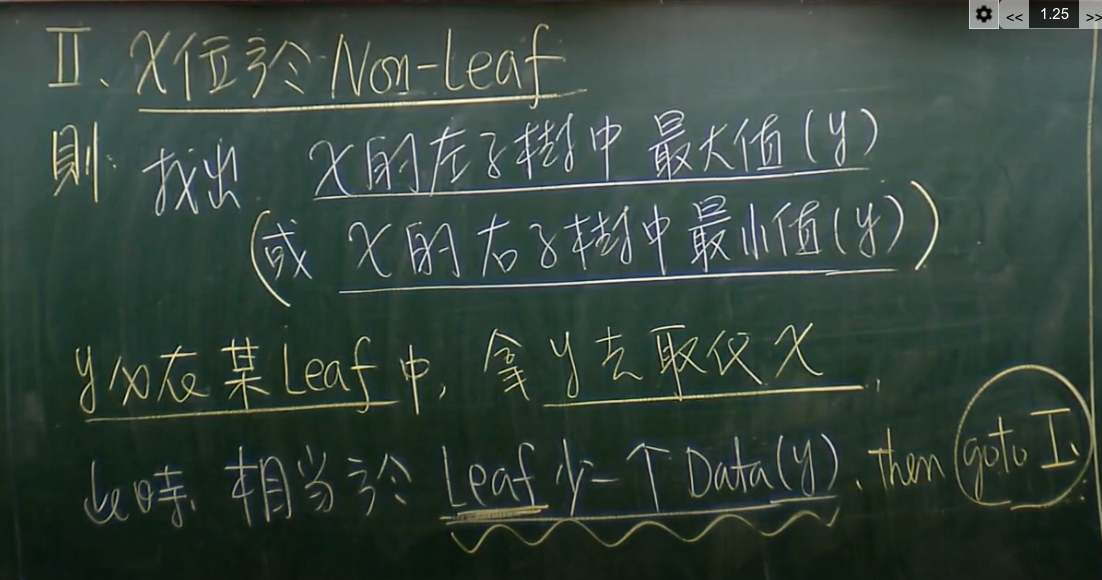 << 1.25 >>
II、X位於 Non-Leaf
則: 找出 X的左子樹中 最大值(y)
(或 X的右子樹中最小值(y))
y必在某Leaf中, 拿y去取代X,
此時, 相当於 Leaf少一个Data(y)、then goto I、